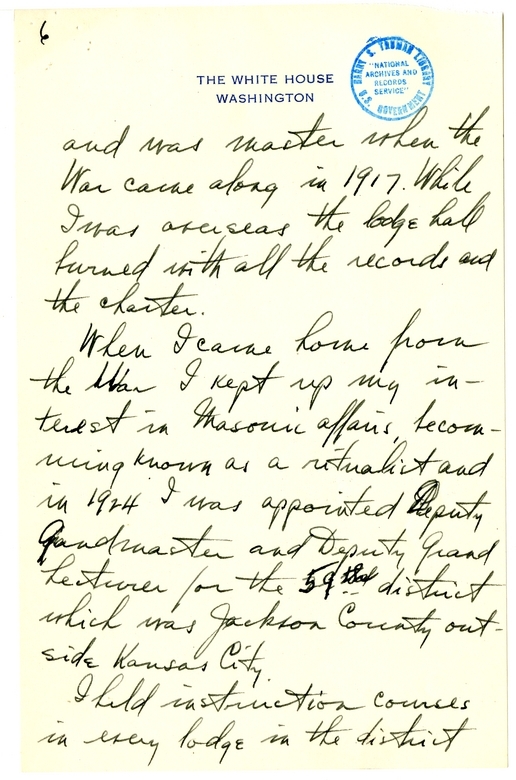 6
THE WHITE HOUSE
WASHINGTON
HARRY S. TRUMAN LIBRARY
"NATIONAL
ARCHIVES AND
RECORDS
SERVICE"
U.S. GOVERNMENT
and was master when the
War came along in 1917. While
I was overseas the lodge hall
burned with all the records and
the charter.
When I came home from
the War I kept up my in-
terest in Masonic affairs, becom-
ming known as a ritualist and
in 1924 I was appointed Deputy
Grandmaster and Deputy Grand
Lecturer for the 59 district
which was Jackson County out-
side Kansas City.
I held instruction courses
in every lodge in the district